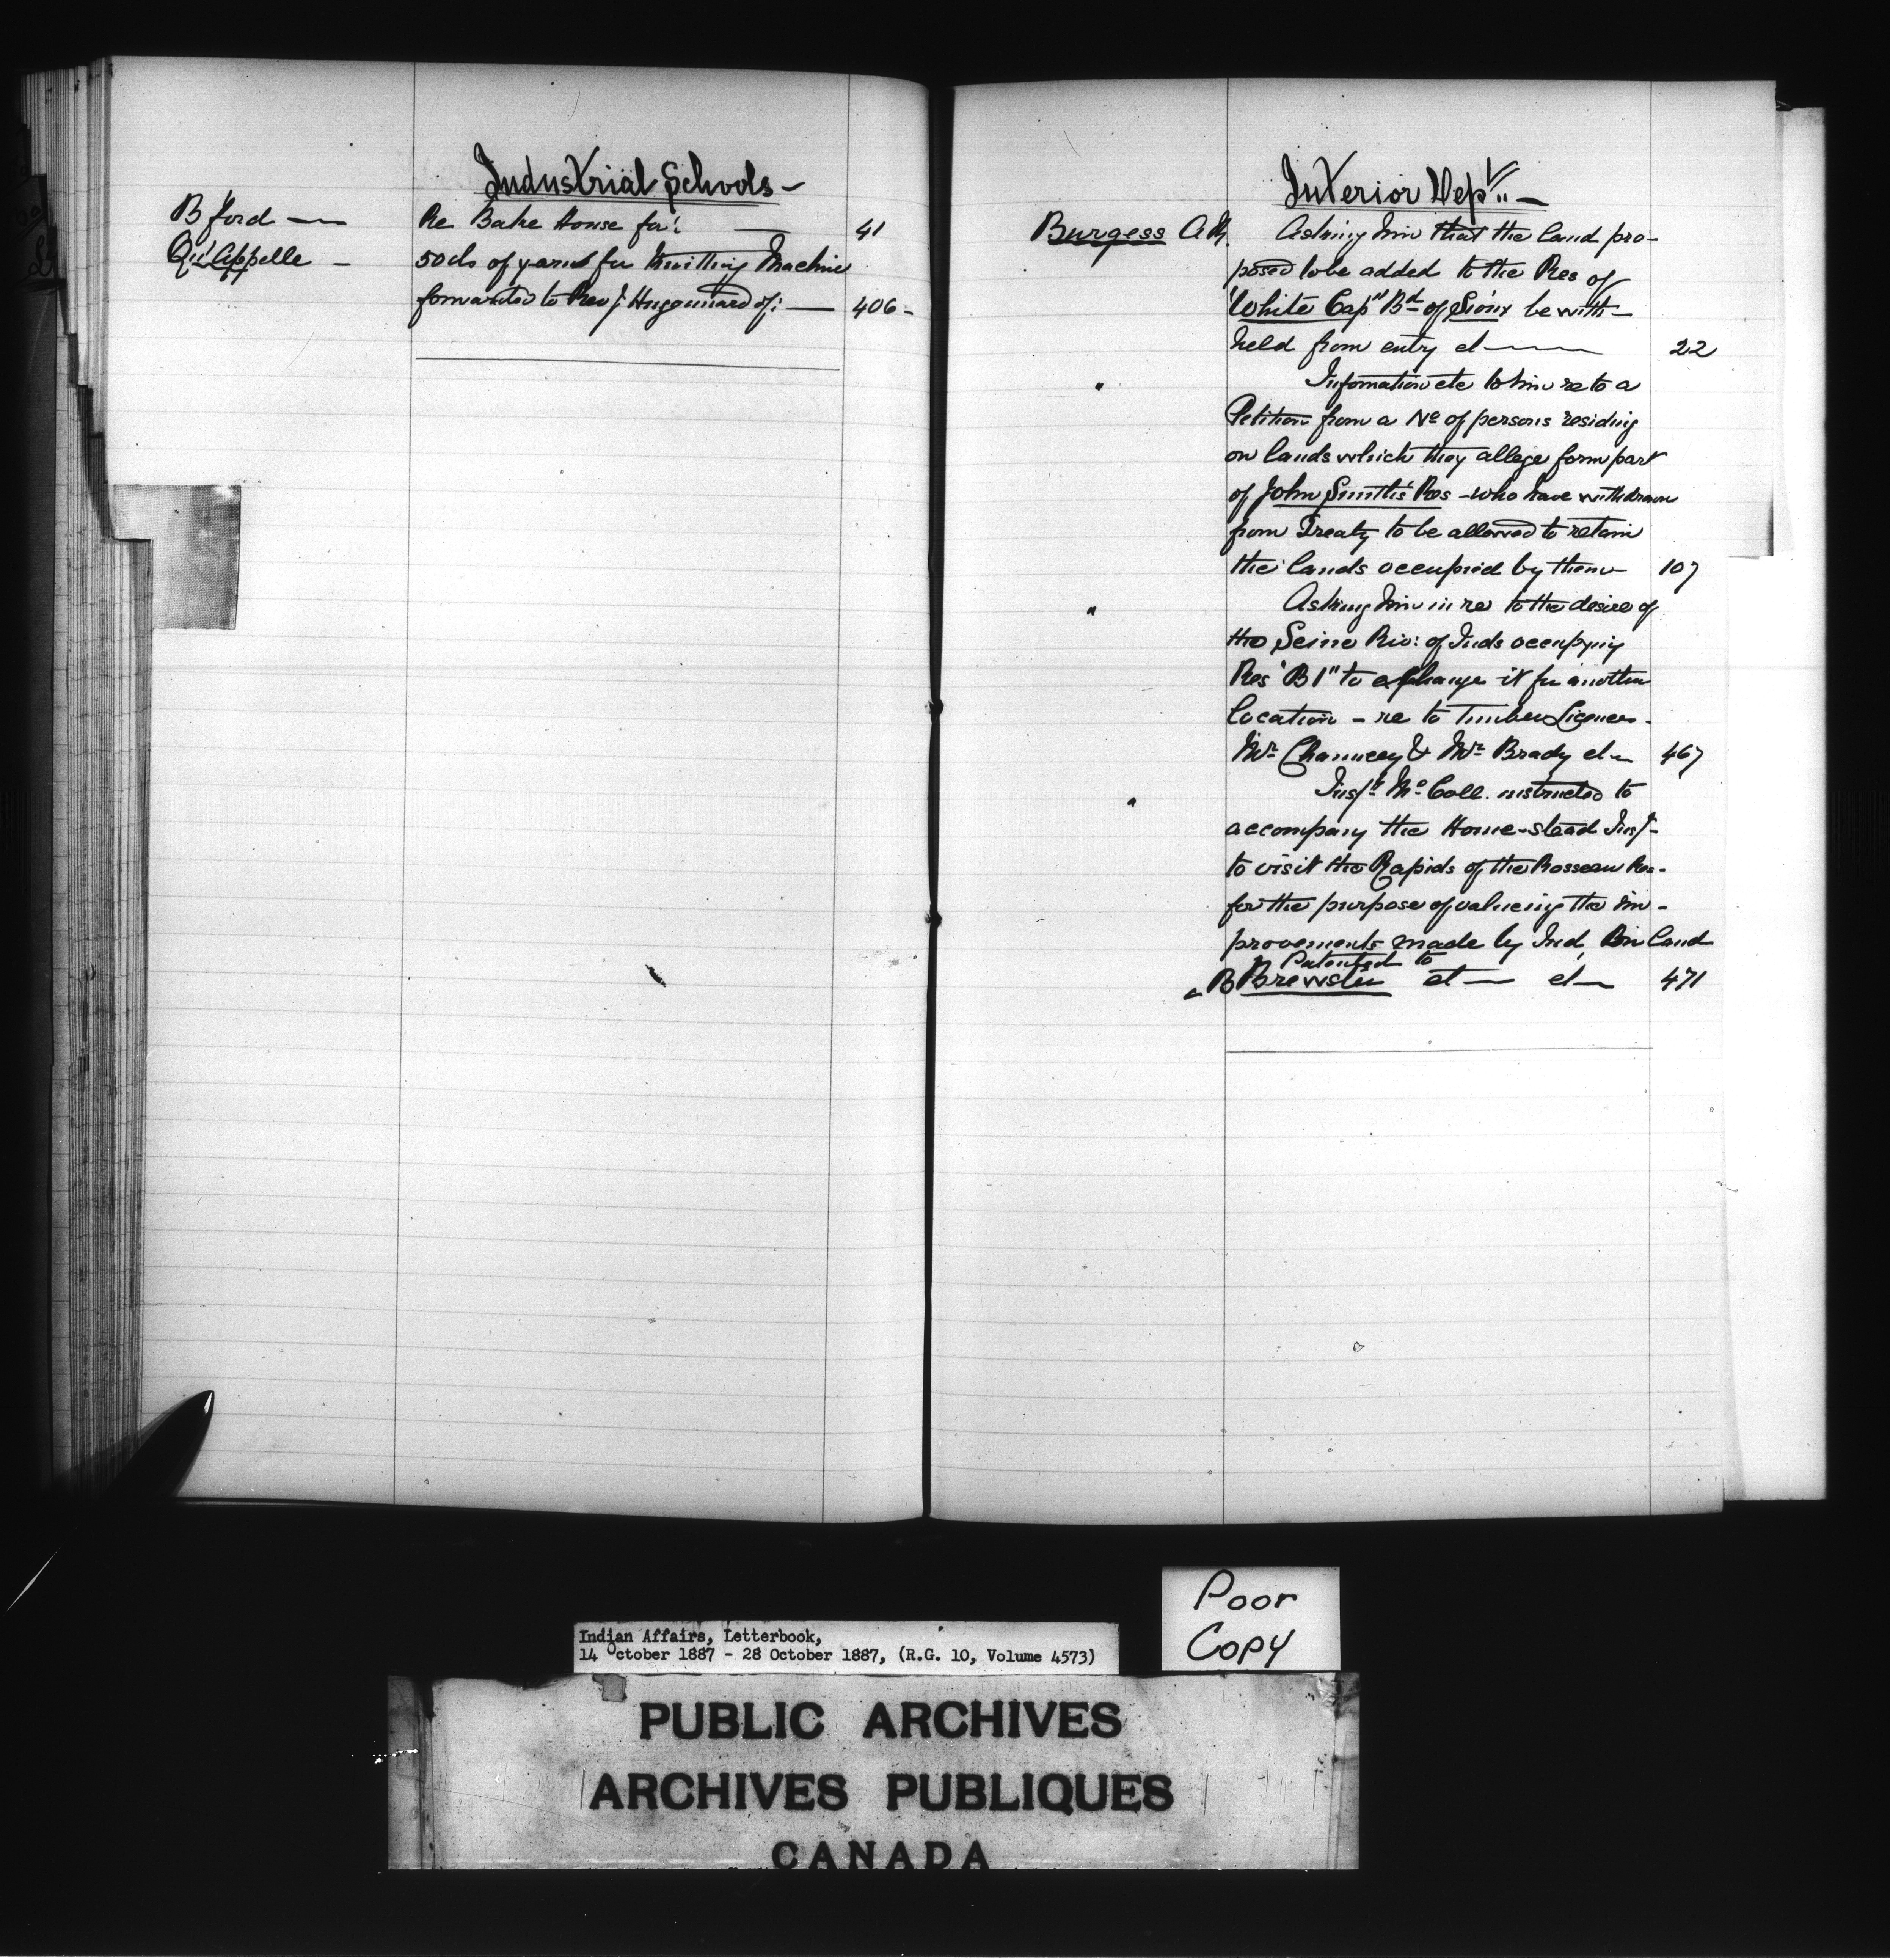 Industrial Schools —
Bford — Re Bake House for: — 41
Qu'Appelle — 50 lbs of yarn for Knitting Machine
forwarded to Rev J. Hugonnard of: — 406 -
Interior Dept. —
Burgess A M. Asking him that the land pro-
posed to be added to the Res of
"White Cap" Bd of Sioux be with-
held from entry et — 22
" Information etc to him re to a
Petition from a No of persons residing
on lands which they allege form part
of John Smith's Res - who have withdrawn
from Treaty to be allowed to retain
the lands occupied by them — 107
" Asking him in re to the desire of
the Seine Riv: of Inds occupying
Res "B 1" to exchange it for another
location - re to Timber Licences.
Mr Chauncey & Mr Brady et — 467
" Insp. Mc Coll. instructed to
accompany the Home-stead Insp.
to visit the Rapids of the Rosseau Res.
for the purpose of valueing the im-
provements made by Ind, on land
Patented to
B Brewster et — et — 471
Poor
Copy
Indian Affairs, Letterbook,
14 October 1887 - 28 October 1887, (R.G. 10, Volume 4573)
PUBLIC ARCHIVES
ARCHIVES PUBLIQUES
CANADA